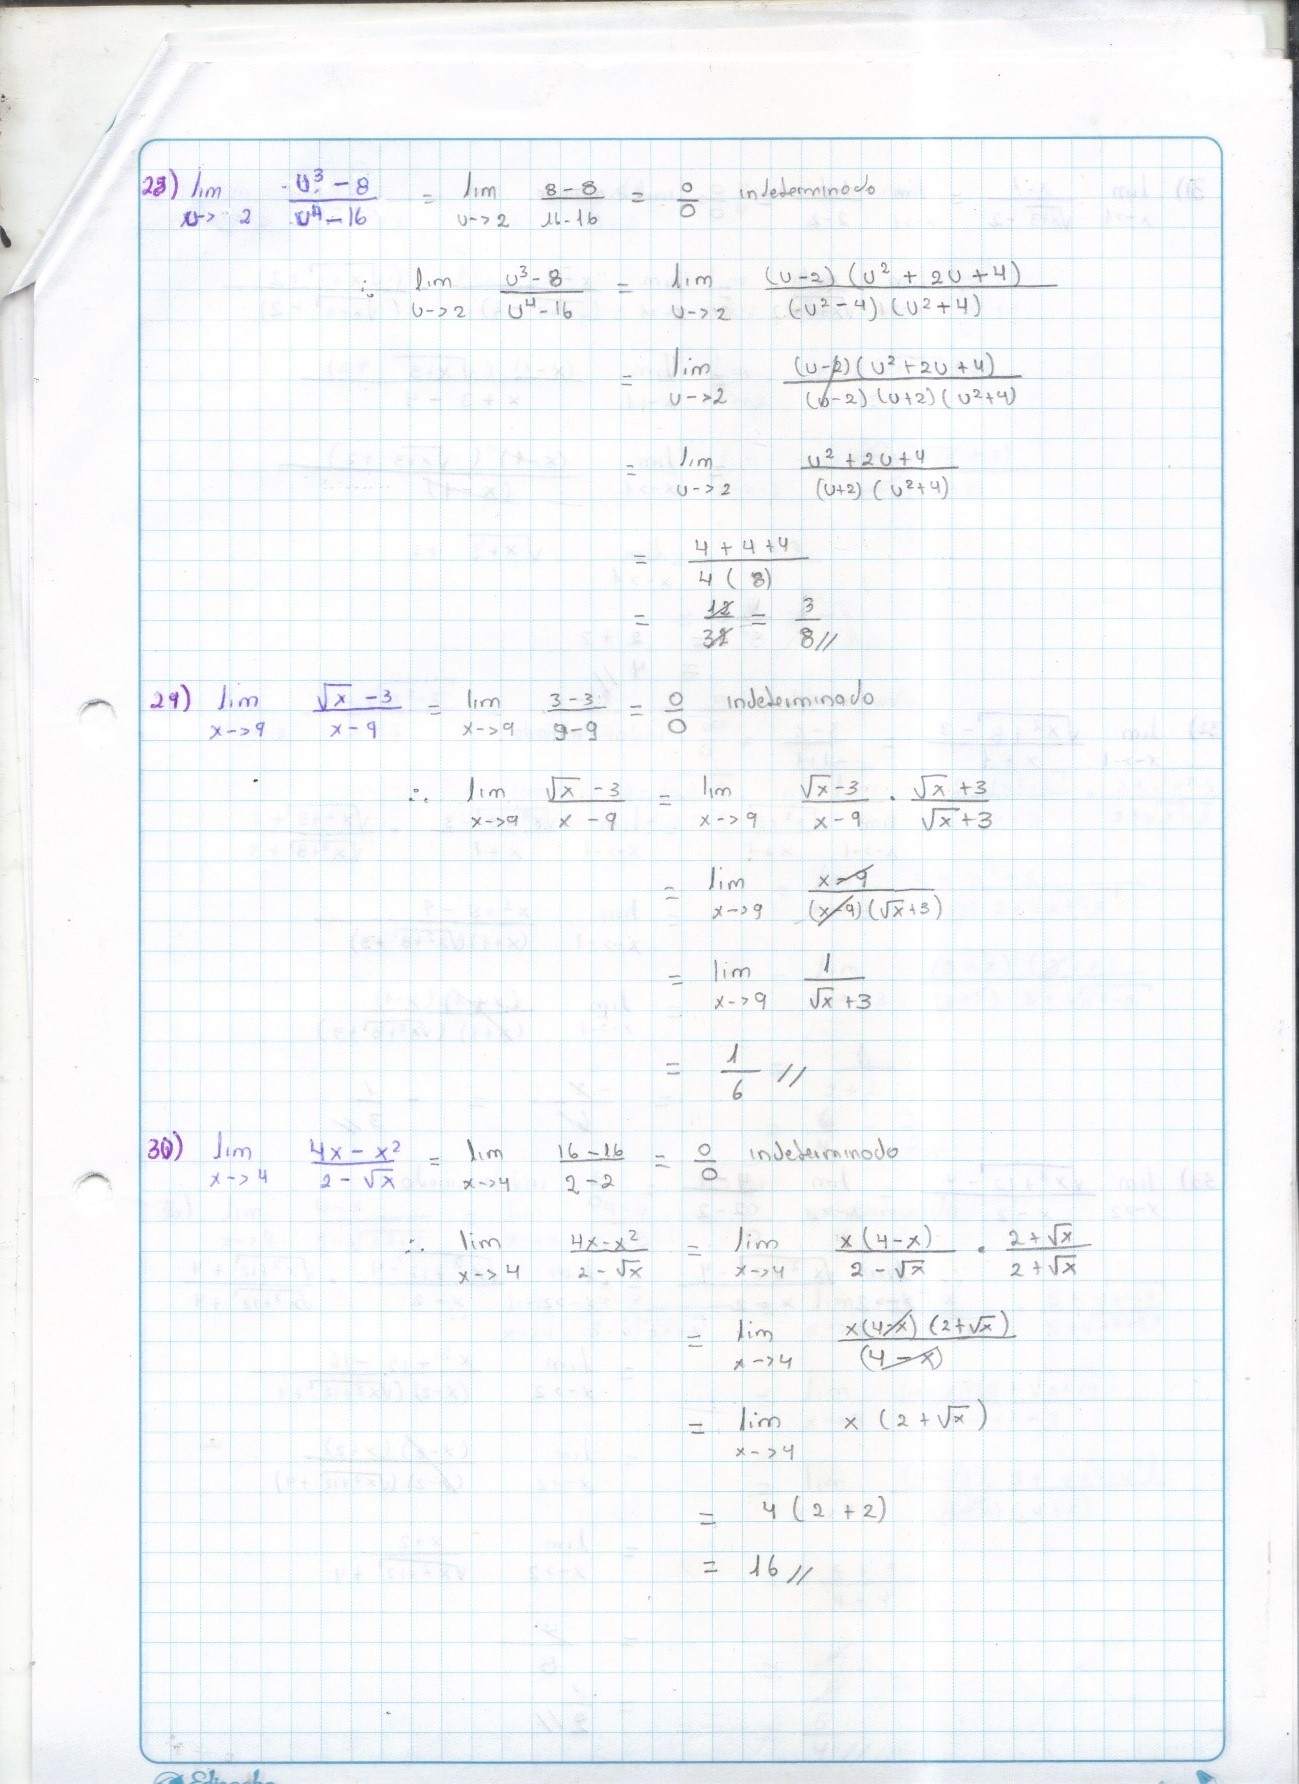 28) lim u->2 (u³-8)/(u⁴-16) = lim u->2 (8-8)/(16-16) = 0/0 indeterminado
∴ lim u->2 (u³-8)/(u⁴-16) = lim u->2 (u-2)(u²+2u+4)/(u²-4)(u²+4)
= lim u->2 (u-2)(u²+2u+4)/(u-2)(u+2)(u²+4)
= lim u->2 (u²+2u+4)/(u+2)(u²+4)
= (4+4+4)/4(8)
= 12/32 = 3/8 //
29) lim x->9 (√x-3)/(x-9) = lim x->9 (3-3)/(9-9) = 0/0 indeterminado
∴ lim x->9 (√x-3)/(x-9) = lim x->9 (√x-3)/(x-9) · (√x+3)/(√x+3)
= lim x->9 (x-9)/(x-9)(√x+3)
= lim x->9 1/(√x+3)
= 1/6 //
30) lim x->4 (4x-x²)/(2-√x) = lim x->4 (16-16)/(2-2) = 0/0 indeterminado
∴ lim x->4 (4x-x²)/(2-√x) = lim x->4 x(4-x)/(2-√x) · (2+√x)/(2+√x)
= lim x->4 x(4-x)(2+√x)/(4-x)
= lim x->4 x(2+√x)
= 4(2+2)
= 16 //